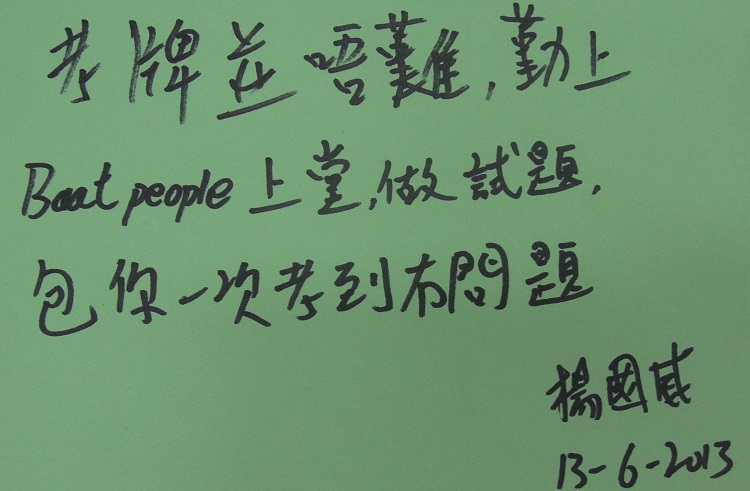 考牌並唔難,勤上
Boat people 上堂,做試題,
包你一次考到冇問題
楊國威
13-6-2013